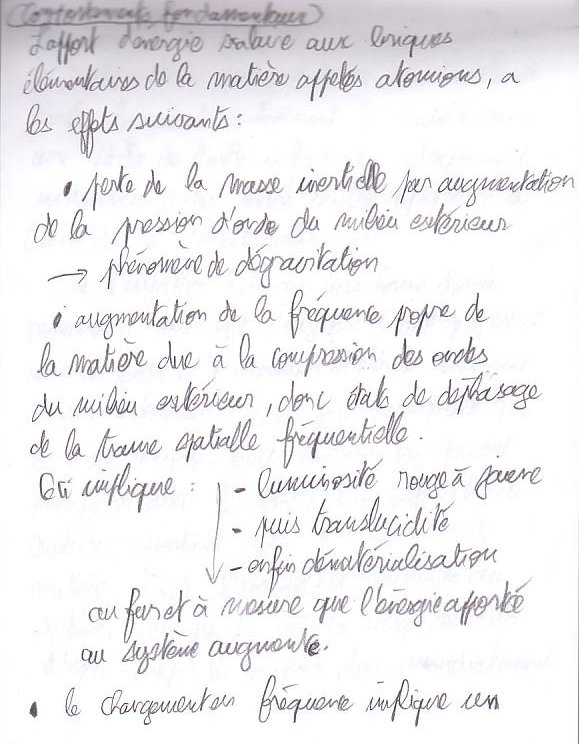 (Comportements fondamentaux)
L'apport d'énergie scalaire aux briques
élémentaires de la matière appelés atomions, a
les effets suivants :
• perte de la masse inertielle par augmentation
de la pression d'onde du milieu extérieur
→ phénomène de dégravitation
• augmentation de la fréquence propre de
la matière due à la compression des ondes
du milieu extérieur, donc états de déphasage
de la trame spatialle fréquentielle.
Ceci implique : - luminosité rouge à jaune
- puis translucidité
- enfin dématérialisation
au fur et à mesure que l'énergie apportée
au système augmente.
• le changement en fréquence implique un